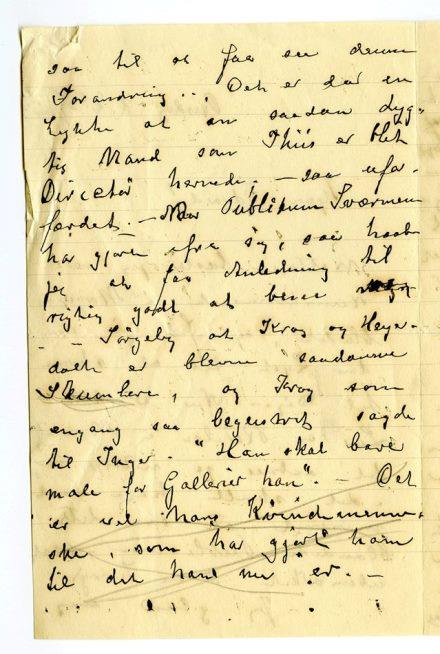 saa til at faa se denne
Forandring... Det er da en
Lykke at en saadan dyg-
tig Mand som Thiis er blet
Directør hernede, – saa ufor-
færdet. – Naar Publikum Sværmeri
har gjort fra sig, saa haaber
jeg at faa Anledning til
rigtig godt at bese
– Sørgelig at Krog og Heyer-
dahl er blevne saadanne
Skumlere, og Krog som
engang saa begeistret sagde
til Inger. "Han skal bare
male for Gallerier han". – Det
er vel hans Kvindemenne-
ske, som har gjort ham
til det han nu er. –